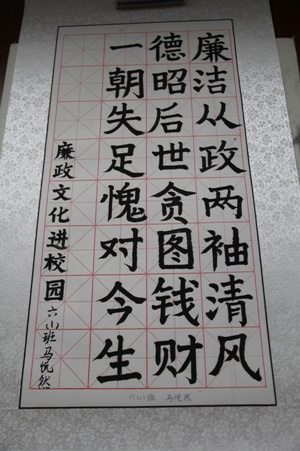 廉洁从政两袖清风
德昭后世贪图钱财
一朝失足愧对今生
廉政文化进校园
六(1)班马悦然
六(1)班 马悦然